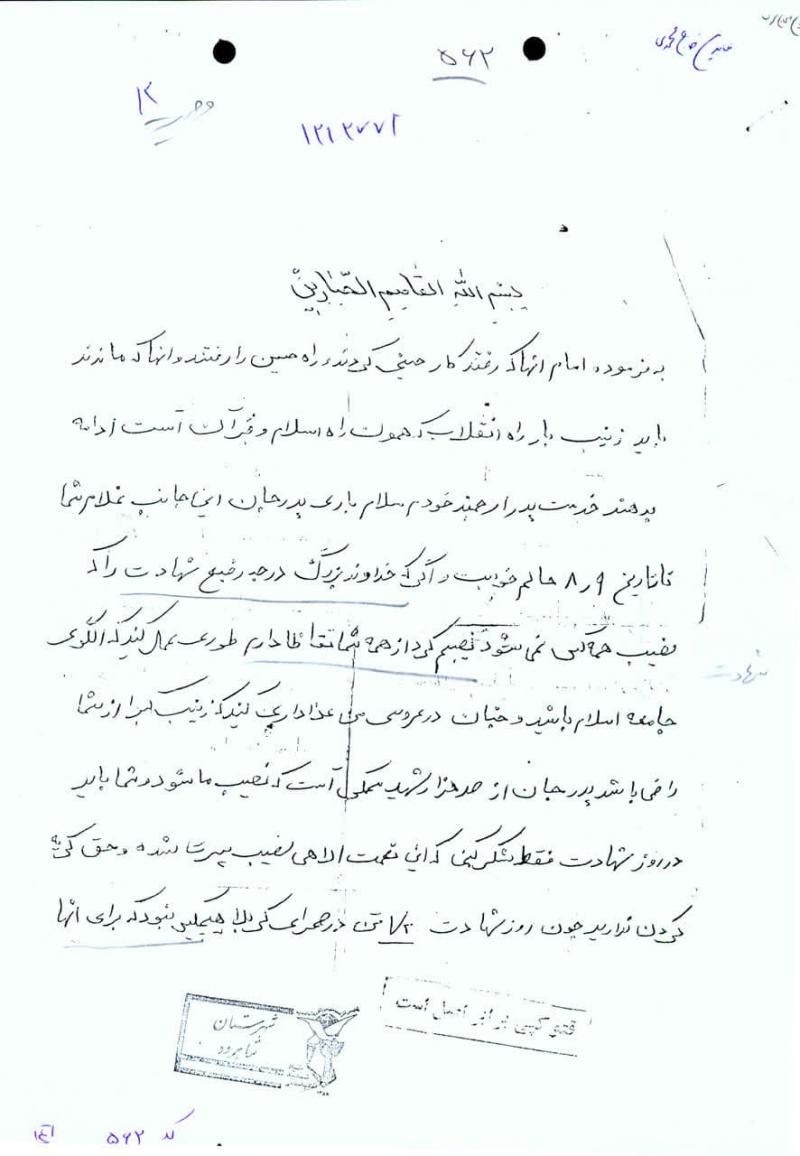 ۵۶۲
وصیت ۱۲
۱۲۱۲۷۷۲
بسم الله القاصم الجبارین
به فرموده امام انها که رفتند کار حسینی کردند و راه حسین را رفتند و انها که ماندند
باید زینب بار راه انقلاب که همون راه اسلام و قرآن است ادامه
بدهند خدمت پدر ارجمند خودم سلام باری پدرجان این جانب غلام شما
تا تاریخ ۸ر۹ حالم خوب است و اگر که خداوند بزرگ درجه رفیع شهادت را که
نصیب همه کس نمی شود نصیبم کرد از همه شما تقاظا دارم طوری عمل کنید که الگوی
شهادت
جامعه اسلام باشید و چنان در عروسی من عذاداری کنید که زینب کبرا از شما
راضی باشد پدرجان از صد هزار شهید یکی است که نصیب ما شود و شما باید
در روز شهادت فقط شکر کنی که این نعمت الاهی نصیب پسرت شده و حق گریه
کردن ندارید چون روز شهادت ۷۲ تن در صحرای کربلا هیچکس نبود که برای آنها
فتوکپی برابر اصل است
شهرستان
شاهرود
کد ۵۶۲